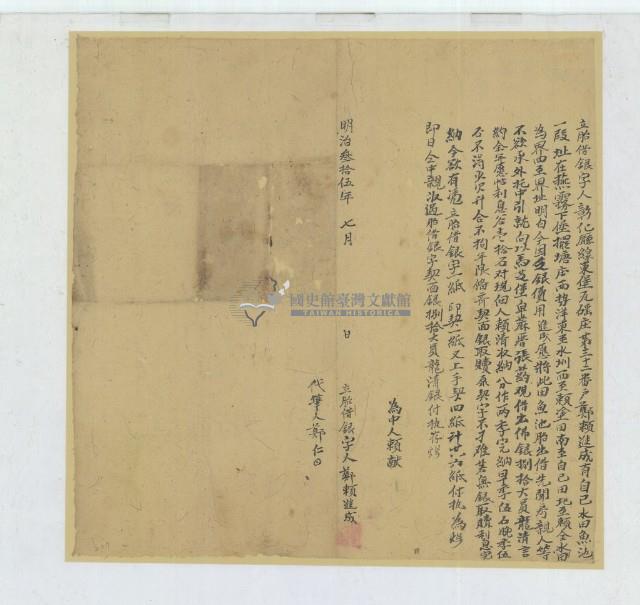 立胎借銀字人彰化廳線東堡瓦磘庄第三十二番戶鄭賴進成有自己水田魚池
一段址在燕霧下堡擺塘庄西勢洋東至水圳西至賴塗田南至自己田北至賴全水田
為界四至界址明白今因乏銀費用進成應將此田魚池胎出借先問房親人等
不欲承外托中引就向以馬芝堡阜蔴厝張葯現借出佛銀捌拾大員龍清言
約全年應帖利息谷壹拾石対現佃人賴清收納分作兩季完納早季伍石晚季伍
石不得少欠升合不拘年限備齊契面銀取贖原契字不才难若無銀取贖利息
納今欲有憑立胎借銀字一紙印契一紙又上手契四紙計共六紙付执為炤
即日仝中親收過胎借銀字契面銀捌拾大員龍清銀付执存炤
為中人賴献
明治叁拾伍年 七月 日
立胎借銀字人鄭賴進成
代筆人鄭仁
國史館臺灣文獻館
TAIWAN HISTORICA